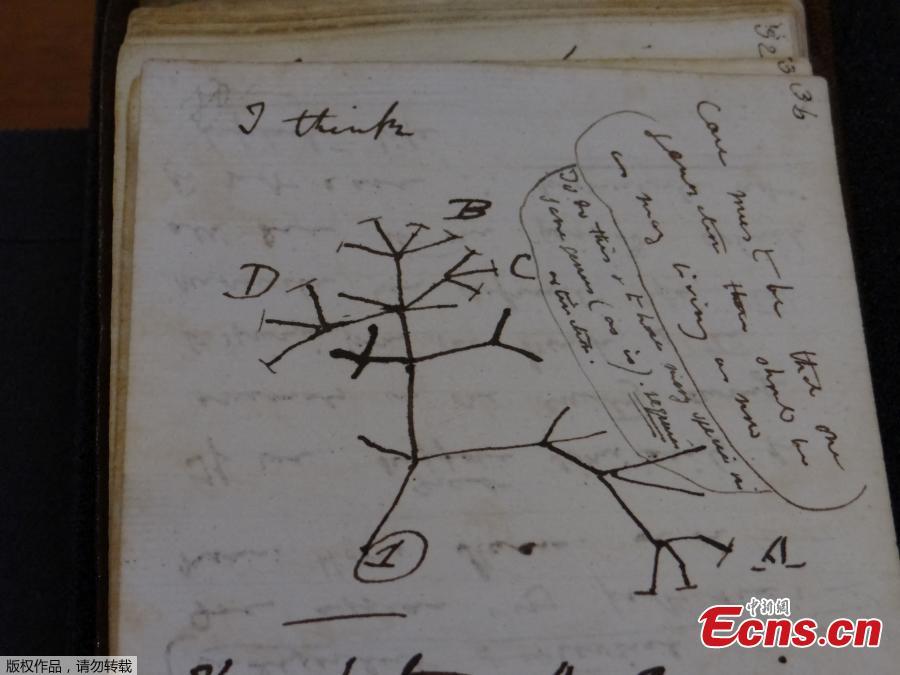 36
I think
Case must be that one
generation then should be
as many living as now
To do this & to have many species in
same genus (as is). requires
extinction.
B
D
C
A
1
中新网
Ecns.cn
版权作品，请勿转载